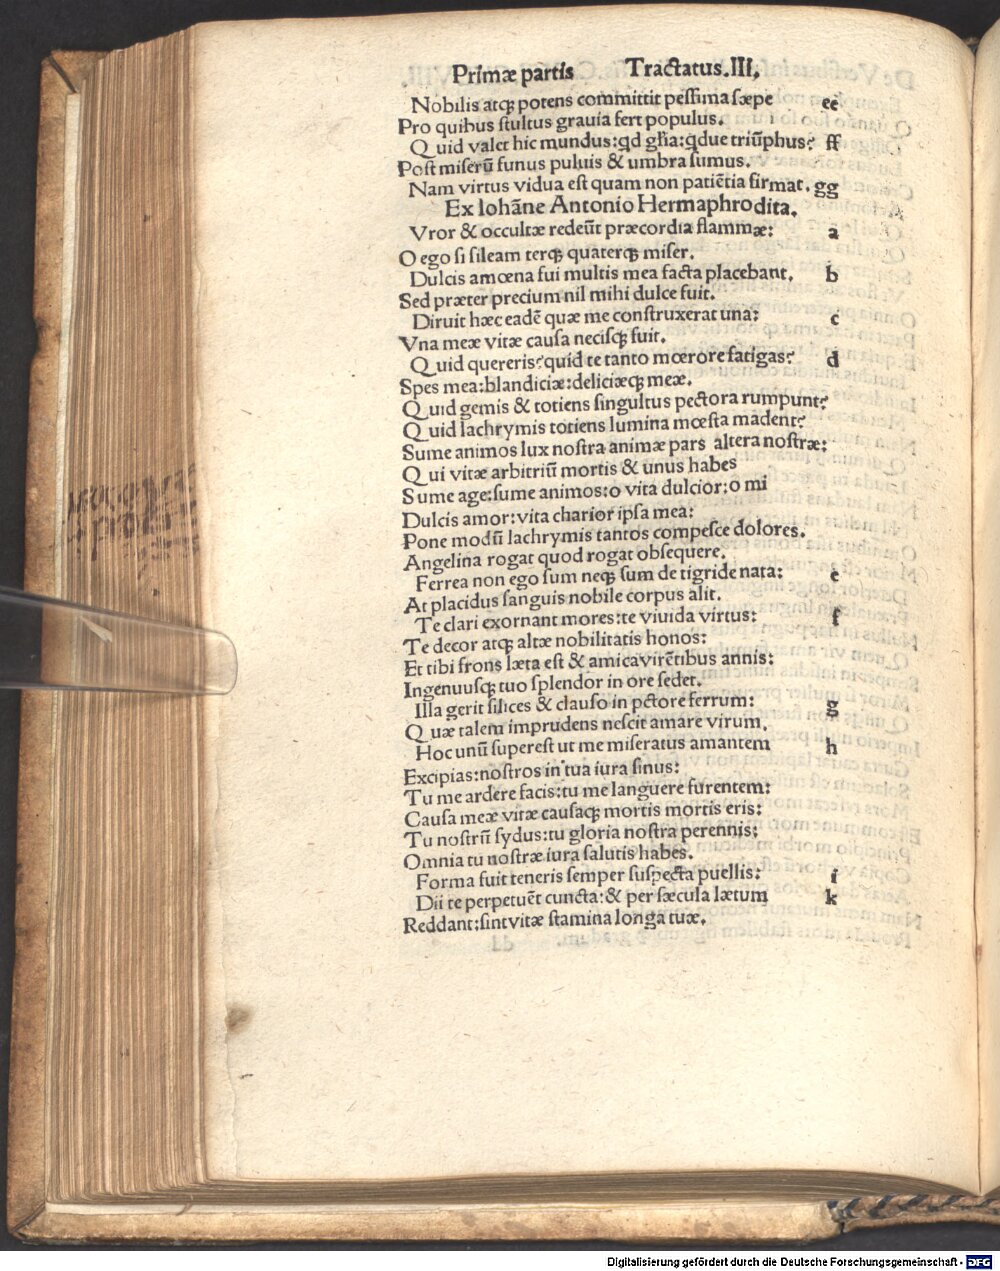 Primæ partis Tractatus.III.
Nobilis atqꝫ potens committit pessima sæpe ee
Pro quibus stultus grauia fert populus.
Quid valet hic mundus:qd gl̃ia:qdue triũphus? ff
Post miserũ funus puluis & umbra sumus.
Nam virtus vidua est quam non patiẽtia firmat. gg
Ex Iohãne Antonio Hermaphrodita.
Vror & occultæ redeũt præcordia flammæ: a
O ego si sileam terqꝫ quaterqꝫ miser.
Dulcis amœna fui multis mea facta placebant. b
Sed præter precium nil mihi dulce fuit.
Diruit hæc eadẽ quæ me construxerat una: c
Vna meæ vitæ causa necisqꝫ fuit.
Quid quereris?quid te tanto mœrore fatigas? d
Spes mea:blandiciæ:deliciæqꝫ meæ.
Quid gemis & totiens singultus pectora rumpunt?
Quid lachrymis totiens lumina mœsta madent?
Sume animos lux nostra animæ pars altera nostræ:
Qui vitæ arbitriũ mortis & unus habes
Sume age:sume animos:o vita dulcior:o mi
Dulcis amor:vita charior ipsa mea:
Pone modũ lachrymis tantos compesce dolores.
Angelina rogat quod rogat obsequere.
Ferrea non ego sum neqꝫ sum de tigride nata: e
At placidus sanguis nobile corpus alit.
Te clari exornant mores:te viuida virtus: f
Te decor atqꝫ altæ nobilitatis honos:
Et tibi frons læta est & amica virẽtibus annis:
Ingenuusqꝫ tuo splendor in ore sedet.
Illa gerit silices & clauso in pctore ferrum: g
Quæ talem imprudens nescit amare virum.
Hoc unũ superest ut me miseratus amantem h
Excipias:nostros in tua iura sinus:
Tu me ardere facis:tu me languere furentem:
Causa meæ vitæ causaqꝫ mortis mortis eris:
Tu nostrũ sydus:tu gloria nostra perennis:
Omnia tu nostræ iura salutis habes.
Forma fuit teneris semper suspecta puellis: i
Dii te perpetuẽt cuncta:& per sæcula lætum k
Reddant:sint vitæ stamina longa tuæ.
Digitalisierung gefördert durch die Deutsche Forschungsgemeinschaft - DFG